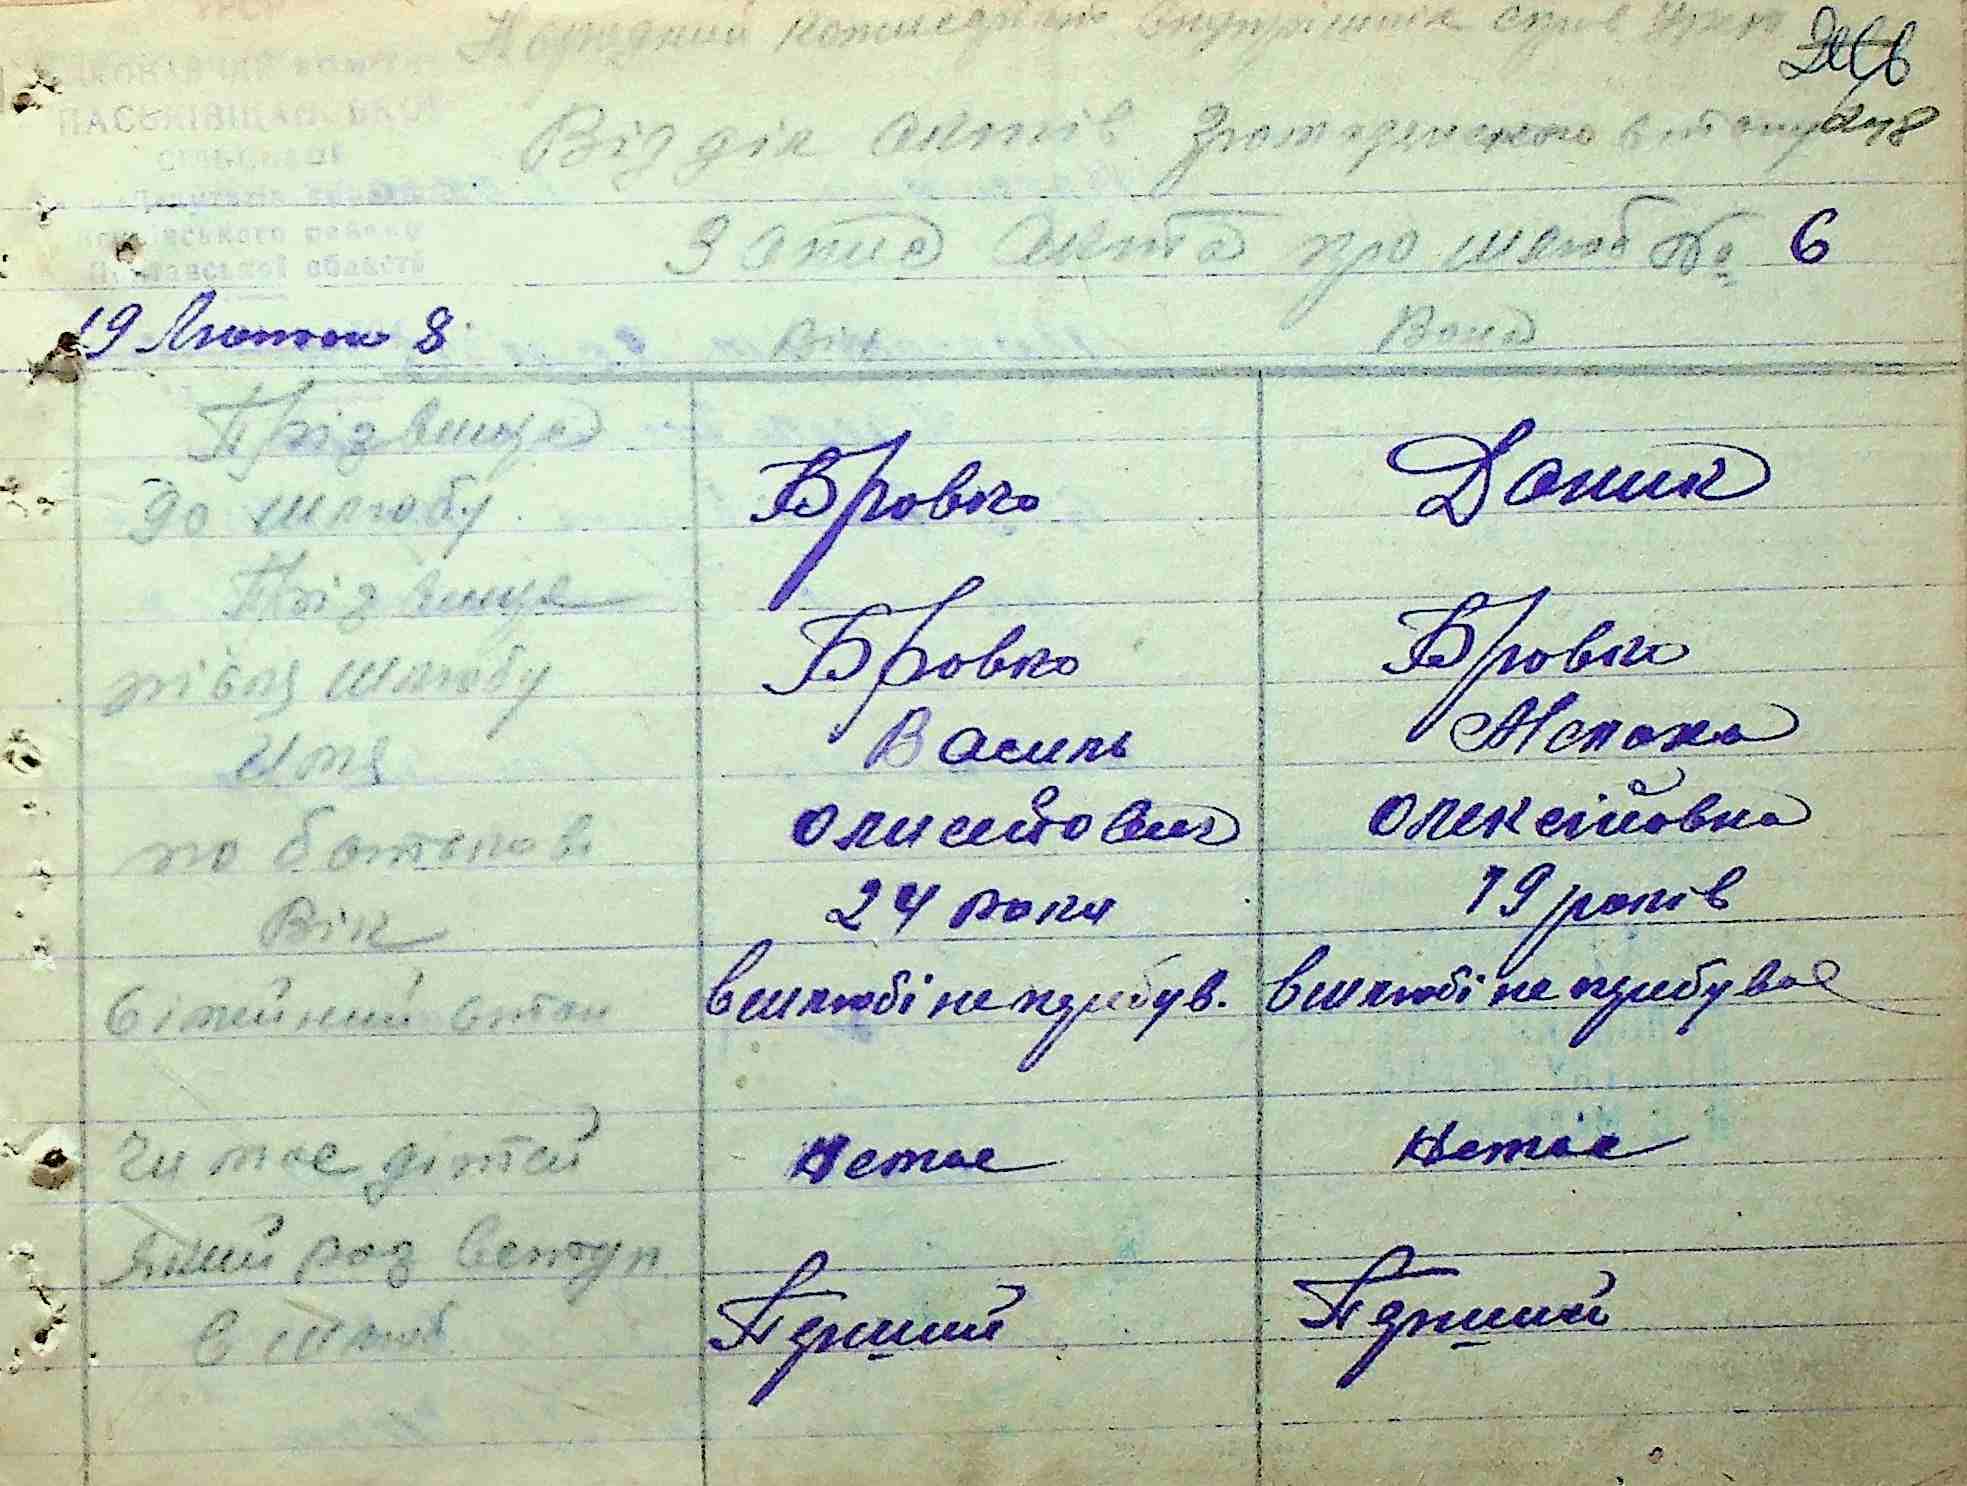 УРСР
ВИКОНАВЧИЙ КОМІТЕТ
ПАСЬКІВЩАНСЬКОЇ
СІЛЬСЬКОЇ
Ради Депутатів трудящих
району
Полтавської області
Народний комісаріат внутрішніх справ УРСР
218
Відділ актів громадянського стану
Запис акта про шлюб № 6
19 Лютого 8
Він Вона
Прізвище
до шлюбу Бровко Даник
Прізвище
після шлюбу Бровко Бровко
Имя Василь
по батькові Олексійовна
Вік 24 роки 19 років
сімейний стан в шлюбі не пребув. в шлюбі не пребувае
Чи має дітей немае немае
Який раз вступ
в шлюб Перший Перший